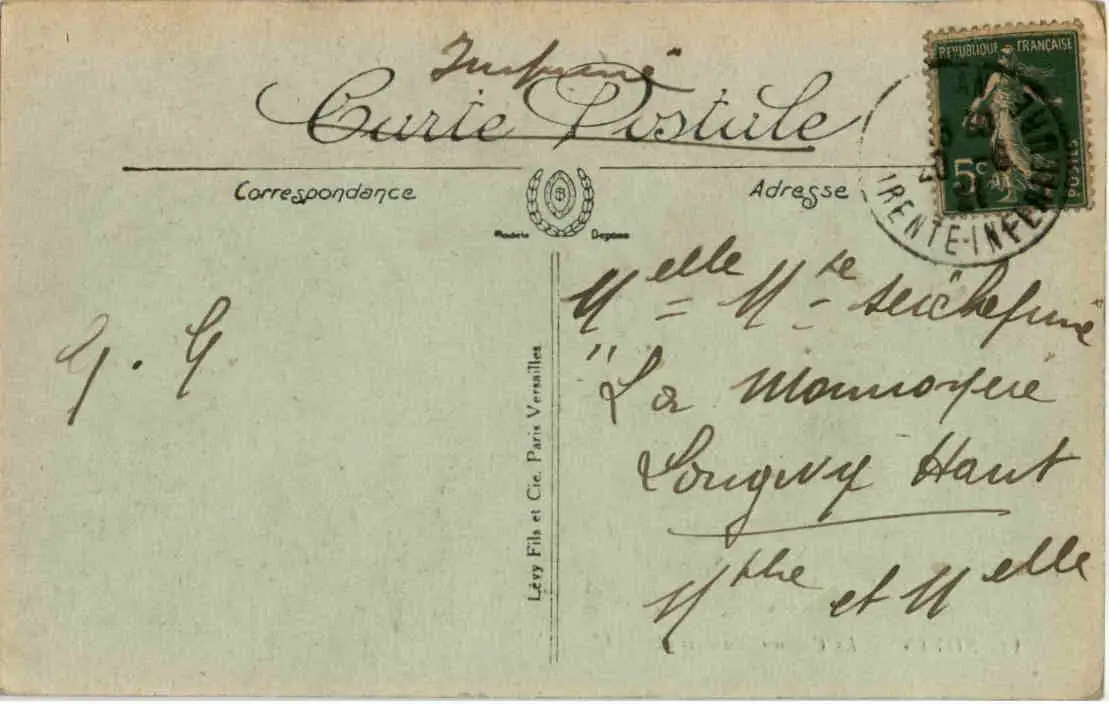 Imprimé
Carte Postale
Correspondance
Adresse
B
Modèle Déposé
RÉPUBLIQUE FRANÇAISE
5c
POSTES
RENTE-INFÉRIEURE
Melle Mse
G. G
"La Monnoyère
Longwy Haut
Mthe et Melle
Lévy Fils et Cie. Paris Versailles